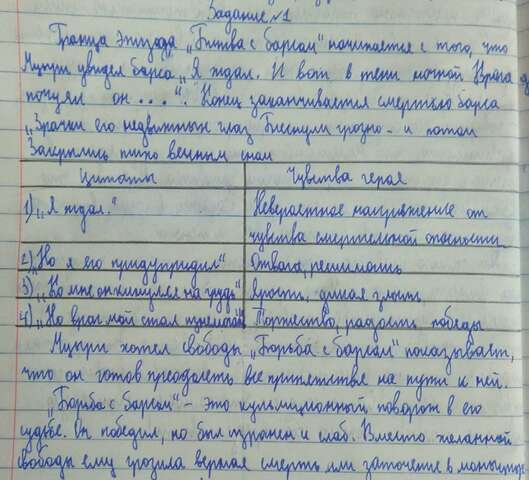 Задание №1
Граница эпизода „Битва с барсом" начинается с того, что
Мцыри увидел барса „Я ждал. И вот в тени ночной Врага
почуял он ...". Конец заканчивается смертью барса
„Зрачки его недвижных глаз Блеснули грозно - и потом
Закрылись тихо вечным сном
Цитаты Чувства героя
1) „Я ждал." Невероятное напряжение от
чувства смертельной опасности
2) „Но я его предупредил" Отвага, решимость
3) „Ко мне он кинулся на грудь" Ярость, дикая злость
4) „Но враг мой стал изнемогать" Торжество, радость победы
Мцыри хотел свободы „Борьба с барсом" показывает,
что он готов преодолеть все препятствия на пути к ней.
„Борьба с барсом" - это кульмционный поворот в его
судьбе. Он победил, но был изранен и слаб. Вместо желанной
свободы ему грозила верная смерть или заточение в монастыре